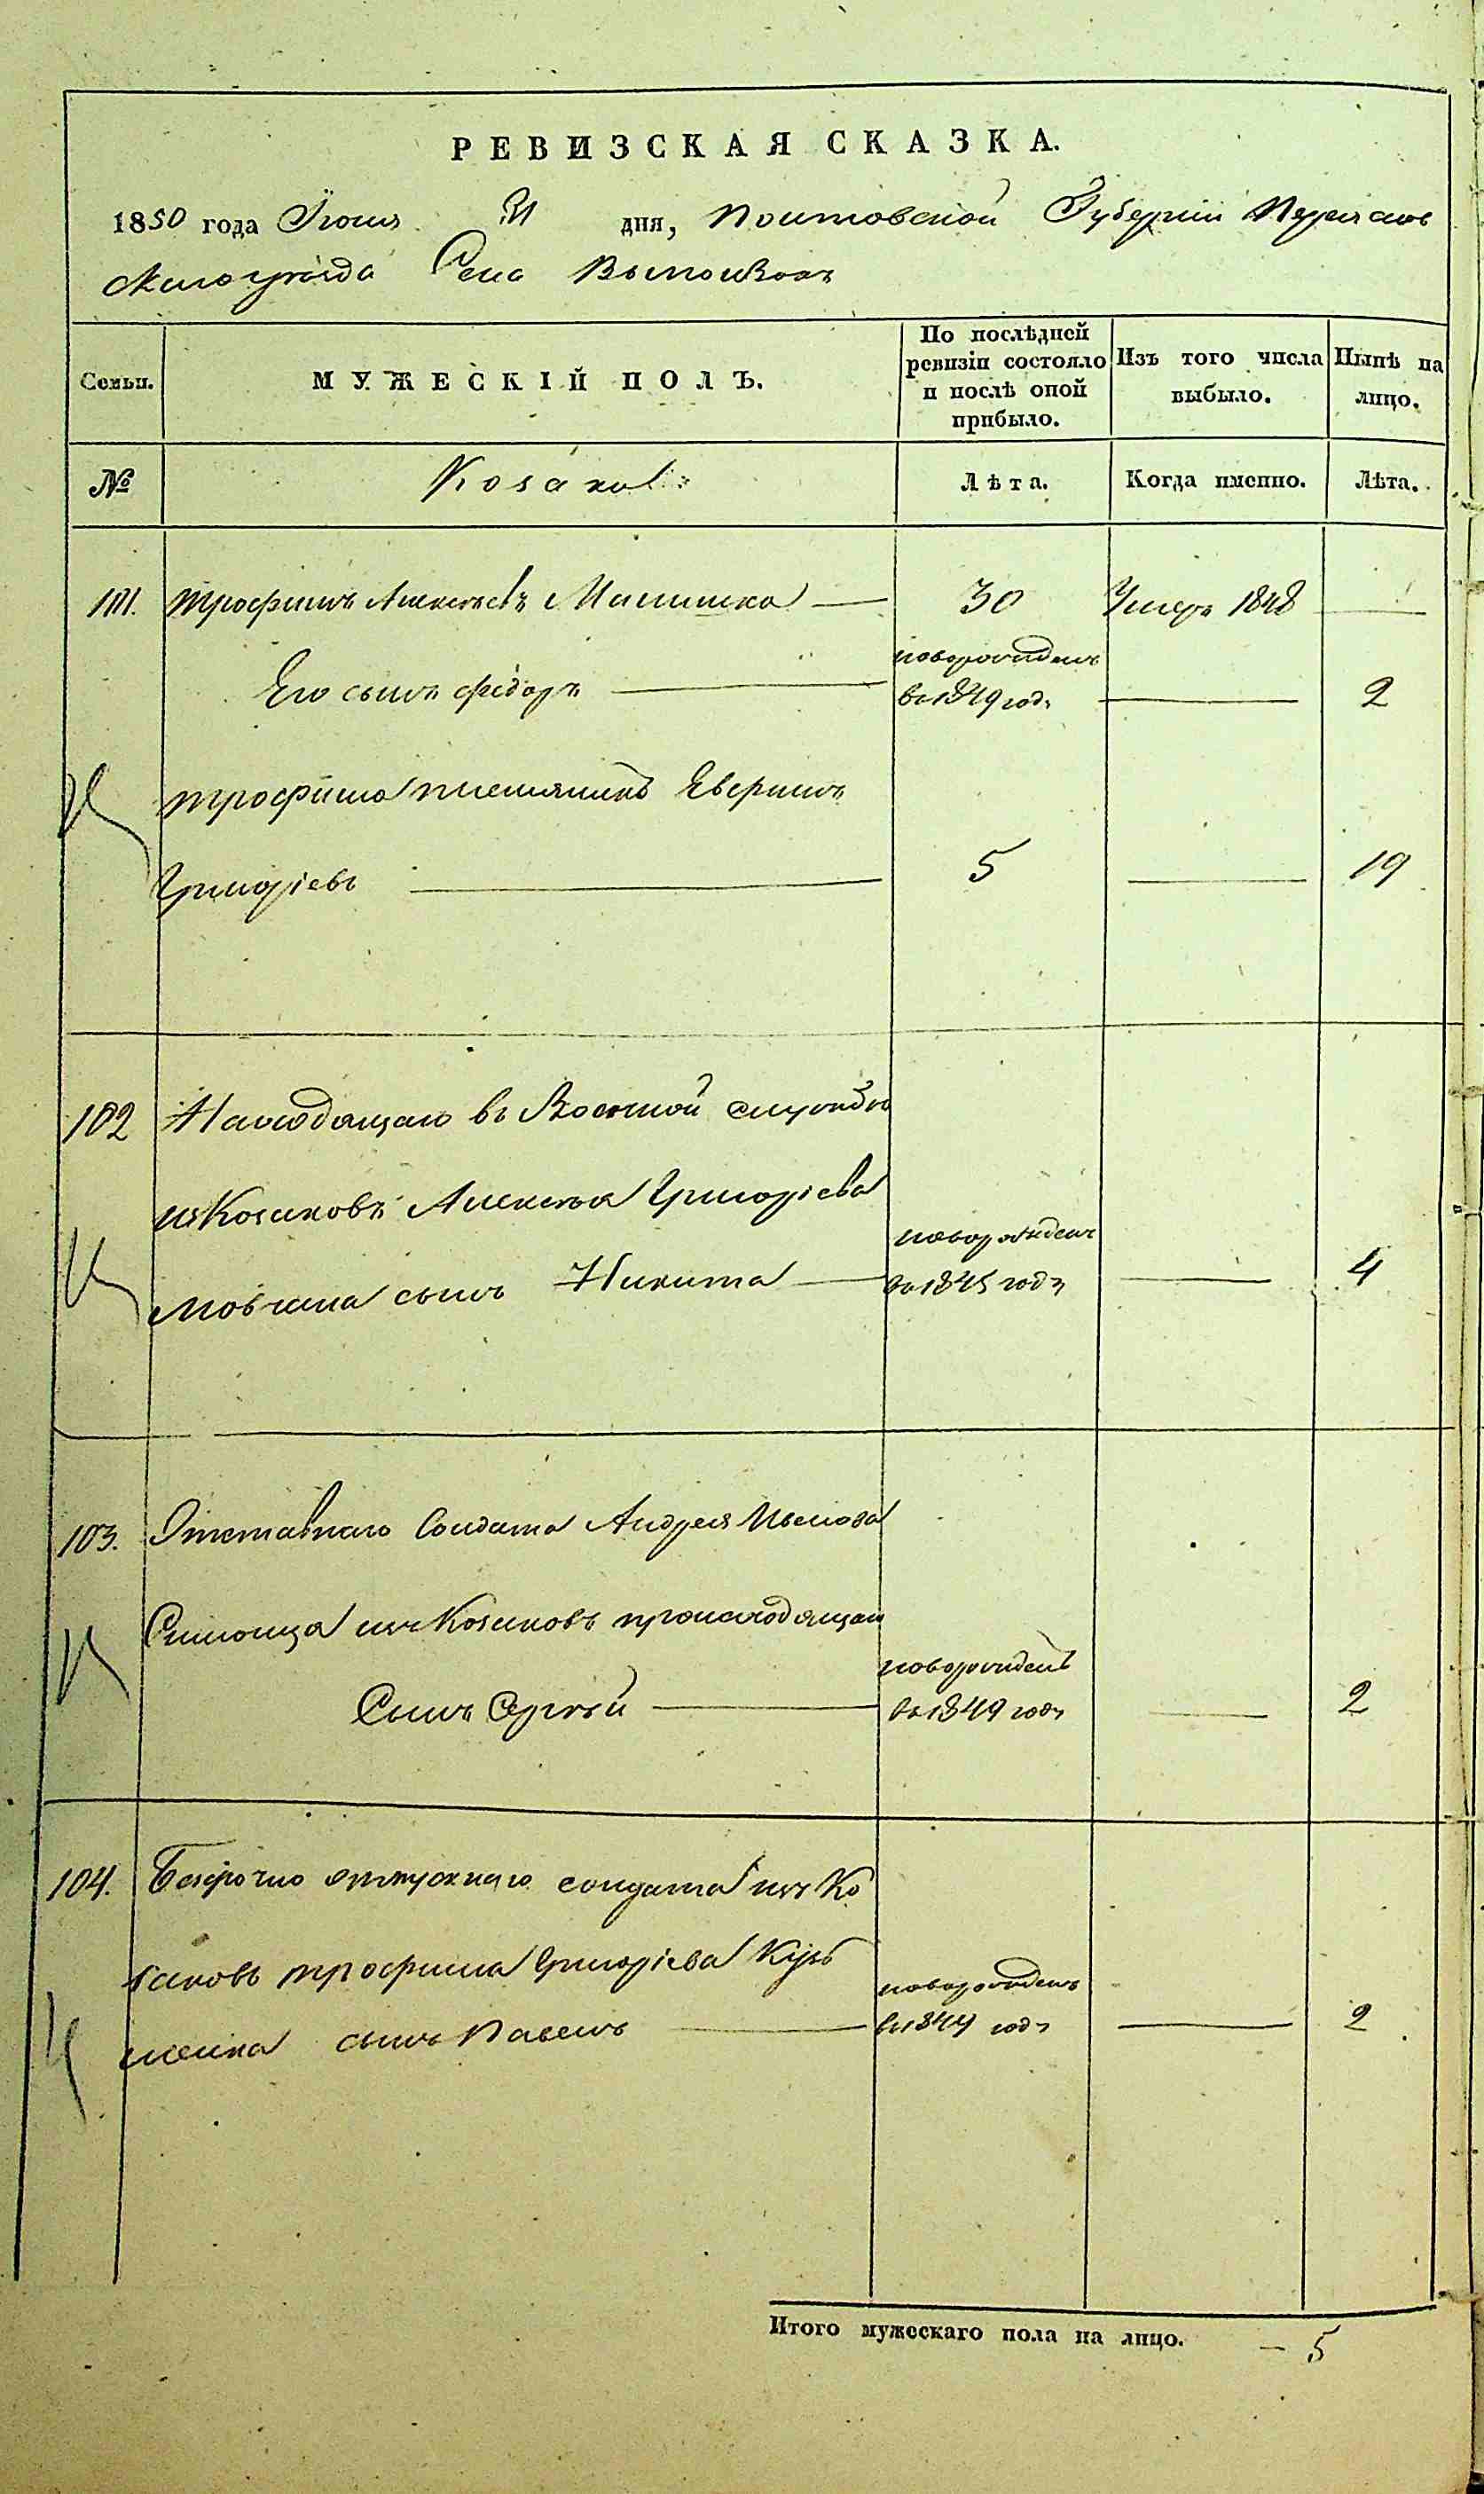 РЕВИЗСКАЯ СКАЗКА.
1850 года Іюня дня, Полтовской Губерніи Переяслов
скаго уѣзда Села
Семьи. МУЖЕСКІЙ ПОЛЪ. По послѣдней ревизіи состояло и послѣ оной прибыло. Изъ того числа выбыло. Нынѣ на лицо.
№ Козаковъ: Лѣта. Когда именно. Лѣта.
101. Трофимъ Алексѣевъ — 30 Умеръ 1848 —
новорожденъ
Его сынъ Федоръ — въ 1849 годѣ — 2
Трофима племяникъ
Григоріевъ — 5 — 19
102 Находящаго въ Военной службѣ
изъ Козаковъ Алексѣя Григоріева
новорожденъ
Мовчана сынъ Никита — въ 1845 годѣ — 4
103. Отставнаго Солдата Андрея
изъ Козаковъ происходящаго
новорожденъ
Сынъ Сергѣй — въ 1849 годѣ — 2
104. Безсрочно отпускнаго солдата изъ Ко
заковъ Трофима Григоріева Кузь
новорожденъ
менка сынъ Павелъ — въ 1849 годѣ — 2
Итого мужескаго пола на лицо. – 5